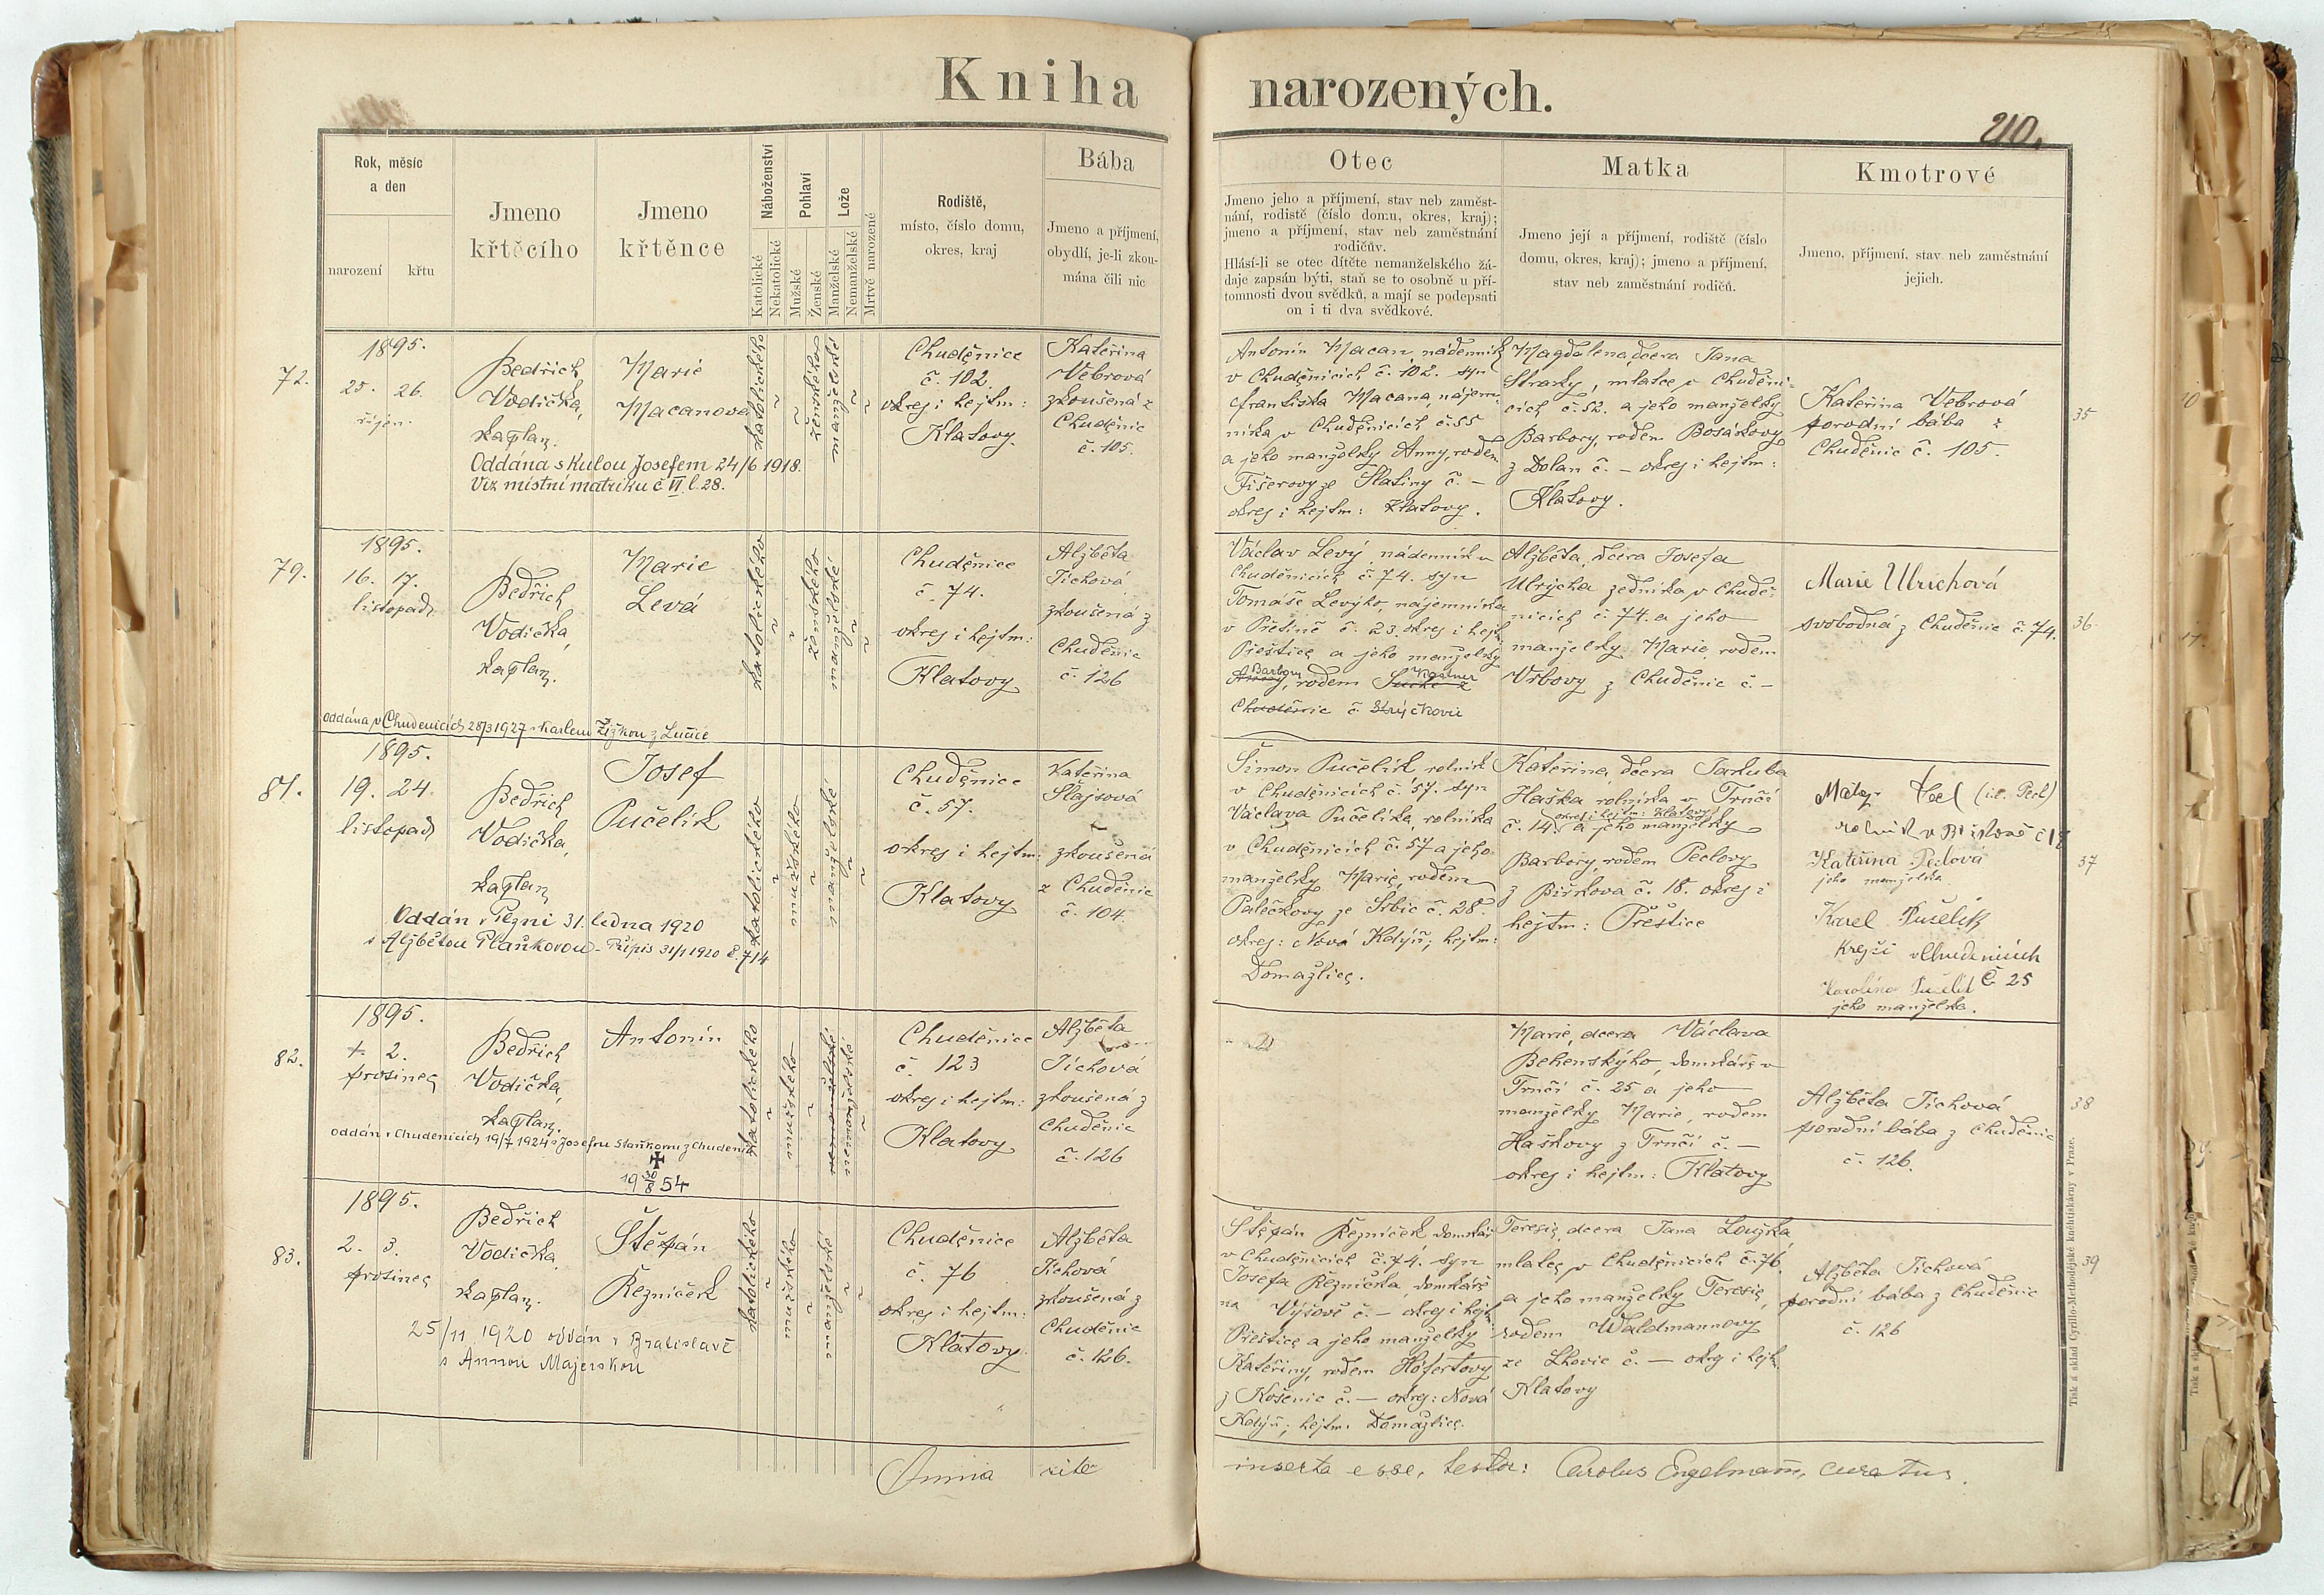 Kniha narozených.
210.
Rok, měsíc
a den
narození
křtu
Jmeno
křtěcího
Jmeno
křtěnce
Náboženství
Katolické
Nekatolické
Pohlaví
Mužské
Ženské
Lože
Manželské
Nemanželské
Mrtvě narozené
Rodiště,
místo, číslo domu,
okres, kraj
Bába
Jmeno a příjmení,
obydlí, je-li zkou-
mána čili nic
Otec
Jmeno jeho a příjmení, stav neb zaměst-
nání, rodistě (číslo domu, okres, kraj);
jmeno a příjmení, stav neb zaměstnání
rodičův.
Hlásí-li se otec dítěte nemanželského žá-
daje zapsán býti, staň se to osobně u pří-
tomnosti dvou svědků, a mají se podepsati
on i ti dva svědkové.
Matka
Jmeno její a příjmení, rodiště (číslo
domu, okres, kraj); jmeno a příjmení,
stav neb zaměstnání rodičů.
Kmotrové
Jmeno, příjmení, stav neb zaměstnání
jejich.
72.
1895.
25. 26.
říjen.
Bedřich
Vodička,
kaplan.
Marie
Macanova
katolického
ženského
manželské
Chuděnice
č. 102.
okres i hejtm:
Klatovy.
Kateřina
Vebrová
zkoušená z
Chuděnic
č. 105.
Oddána s Kulou Josefem 24/6 1918.
Viz místní matriku č VI l. 28.
Antonín Macan, nádenník
v Chuděnicích č. 102. syn
Františka Macana, nájem-
níka v Chuděnicích č. 55
a jeho manželky Anny, roden.
Fišerovy ze Slatiny č. –
okres i hejtm: Klatovy.
Magdalena, dcera Jana
Strasky, mlatce v Chuděni-
cích č. 52. a jeho manželky
Barbory, rodem Bosákovy
z Dolan č. – okres i hejtm:
Klatovy.
Kateřina Vebrová
porodní bába z
Chuděnic č. 105.
35
79.
1895.
16. 17.
listopad
Bedřich
Vodička,
kaplan.
Marie
Levá
katolického
ženského
manželské
Chuděnice
č. 74.
okres i hejtm:
Klatovy
Alžběta
Tichová
zkoušená z
Chuděnic
č. 126
oddána v Chudenicích 28/3 1927 s Karlem Žižkou z Lučice
Václav Levý nádenník v
Chuděnicích č. 74. syn
Tomáše Levýho, nájemníka
v Přetíně č. 23. okres i hejtm
Přeštice a jeho manželky
Barbory, rodem
Chuděnic č.
Alžběta, dcera Josefa
Ulrycha zedníka v Chudě-
nicích č. 74. a jeho
manželky Marie, rodem
Vrbovy z Chuděnic č. –
Marie Ulrichová
svobodná z Chuděnic č. 74.
36
81.
1895.
19. 24
listopad
Bedřich
Vodička,
kaplan
Josef
Pučelík
katolického
mužského
manželské
Chuděnice
č. 57.
okres i hejtm:
Klatovy
Kateřina
Slajsová
zkoušená
z Chuděnic
č. 104.
Oddán v Plzni 31. ledna 1920
s Alžbětou Plaňkovou – Přípis 31/1 1920 č. 714
Šimon Pučelík rolník
v Chuděnicích č. 57. syn
Václava Pučelíka, rolníka
v Chuděnicích č. 57 a jeho
manželky Marie, rodem
Palečkovy ze Srbic č. 28.
okres: Nová Kdýň; hejtm:
Domažlice.
Kateřina, dcera Jakuba
Haška rolníka v Trnčí
okres i hejtm: Klatovy
č. 14. a jeho manželky
Barbory, rodem Peclovy
z Biřkova č. 18. okres i
hejtm: Přeštice
Matej Pecl (i.e. Pecl)
rolník v Biřkově č 18
Kateřina Peclová
jeho manželka
Karel Pučelík
Krejčí v Chudenicích
Karolína Pučelík Č 25
jeho manželka.
37
82.
1895.
† 2.
prosinec
Bedřich
Vodička,
kaplan.
Antonín
katolického
mužského
nemanželské
Chuděnice
č. 123
okres i hejtm:
Klatovy
Alžběta
Tichová
zkoušená z
Chuděnic
č. 126
oddán v Chudenicích 19/7 1924 s Josefou Staňkovou z Chudenic
✠
19 30/8 54
Marie, dcera Václava
Behenskýho, domkáře v
Trnčí č. 25 a jeho
manželky Marie, rodem
Haškovy z Trnčí č. –
okres i hejtm: Klatovy
Alžběta Tichová
porodní bába z Chuděnic
č. 126.
38
83.
1895.
2. 3.
prosinec
Bedřich
Vodička
kaplan.
Štěpán
Řezníček
katolického
mužského
manželské
Chuděnice
č. 76
okres i hejtm:
Klatovy
Alžběta
Tichová
zkoušená z
Chuděnic
č. 126.
25/11 1920 oddán v Bratislavě
s Annou Majerskou
Štěpán Řezníček domkář
v Chuděnicích č. 74. syn
Josefa Řezníčka, domkáře
na Výrově č. – okres i hejtm
Přeštice a jeho manželky
Kateřiny, rodem Höfertovy
z Košenic č. – okres: Nová
Kdýň; hejtm: Domažlice.
Teresie, dcera Jana Loužka,
mlatce v Chuděnicích č. 76.
a jeho manželky Teresie,
rodem Waldmannovy
ze Lhovic č. – okres i hejtm
Klatovy
Alžběta Tichová
porodní bába z Chuděnic
č. 126
39
Omnia rite inserta esse, testor: Carolus Engelmann, curatus.
Tisk a sklad Cyrillo-Methodějské knihtiskárny v Praze.